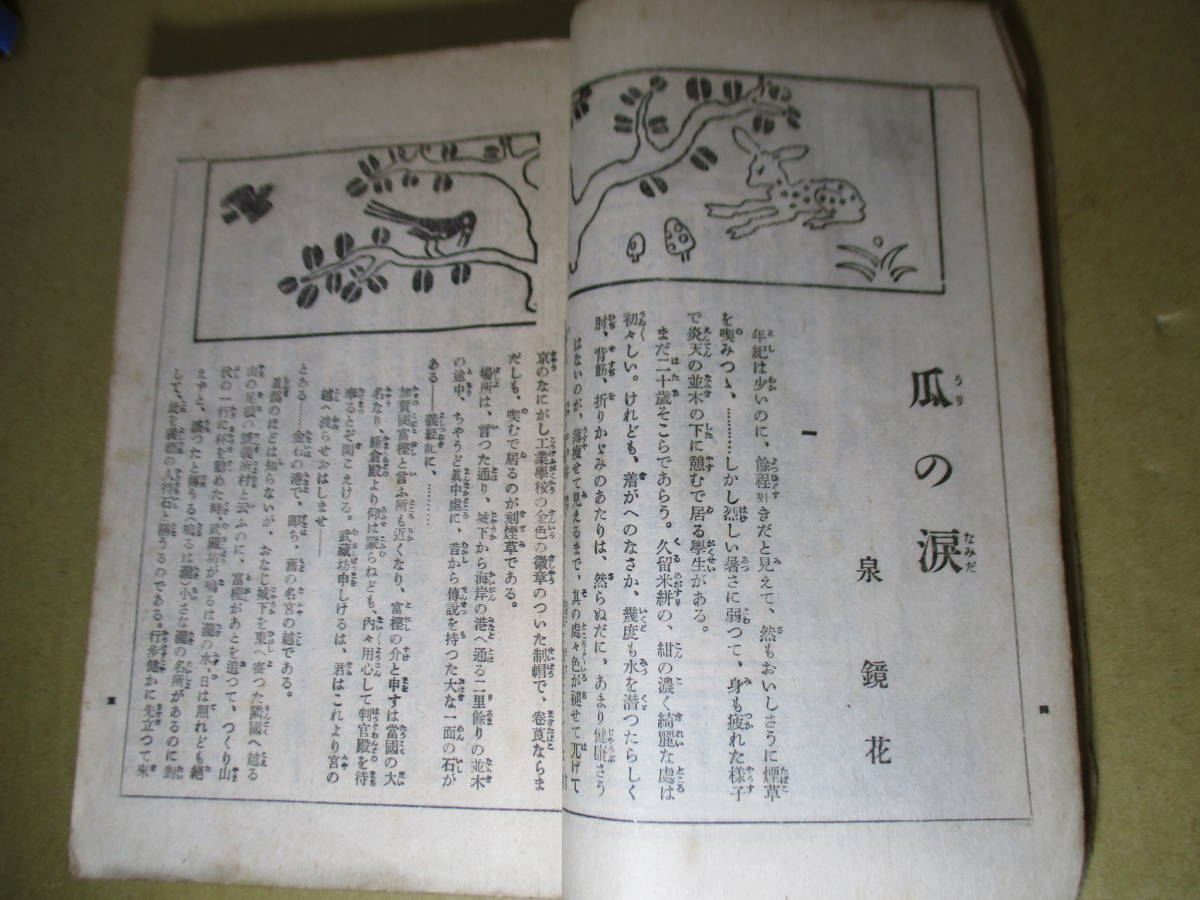 瓜の涙
泉鏡花
一
年紀は少いのに、餘程好きだと見えて、然もおいしさうに煙草
を喫みつゝ、…………しかし烈しい暑さに弱つて、身も疲れた様子
で炎天の並木の下に憩むで居る學生がある。
まだ二十歳そこらであらう。久留米絣の、紺の濃く綺麗な處は
初々しい。けれども、着がへのなさか、幾度も水を潜つたらしく
肘、背筋、折りかゞみのあたりは、然らぬだに、あまり健康さう
はないのが、薄痩せて見えるまで、其の處々色が褪せて兀げて
京のなにがし工業學校の金色の徽章のついた制帽で、卷莨ならま
だしも、喫むで居るのが刻煙草である。
場所は、言つた通り、城下から海岸の港へ通る二里餘りの並木
の途中、ちやうど眞中處に、昔から傳説を持つた大な一面の石が
ある――義經記に、…………
加賀國富樫と言ふ所も近くなり、富樫の介と申すは當國の大
名なり、鎌倉殿より仰は蒙らねども、内々用心して判官殿を待
奉るとぞ聞こえける。武藏坊申しけるは、君はこれより宮の
越へ渡らせおはしませ――
とある……金石の港で、即ち、舊の名宮の越である。
眞僞のほどは知らないが、おなじ城下を東へ寄つた隣國へ越る
山の尾根の談義所村と云ふのに、富樫があとを追つて、つくり山
伏の一行に杯を勸めた時、武藏坊が鳴るは瀧の水、日は照れども絶
えずと、謠つたと傳うる(鳴るは瀧)小さな瀧の名所があるのに對
して、此を義經の人待石と稱うるのである。行歩健かに先立つて來
四
五